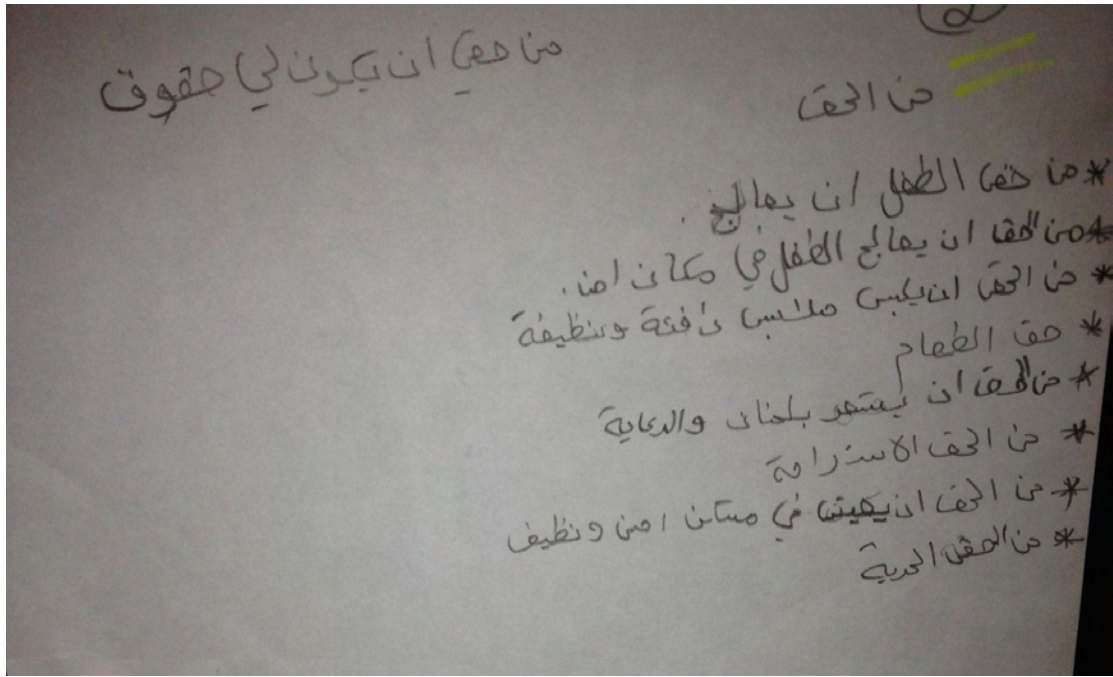 من حقي ان يكون لي حقوق
من الحق
* من حق الطفل ان يعالج.
* من الحق ان يعالج الطفل في مكان امن.
* من الحق ان يلبس ملابس دافئة ونظيفة
* حق الطعام
* من الحق ان يشعر بلحنان والرعاية
* من الحق الاستراحة
* من الحق ان يعيش في مسكن امن ونظيف
* من الحق الحرية